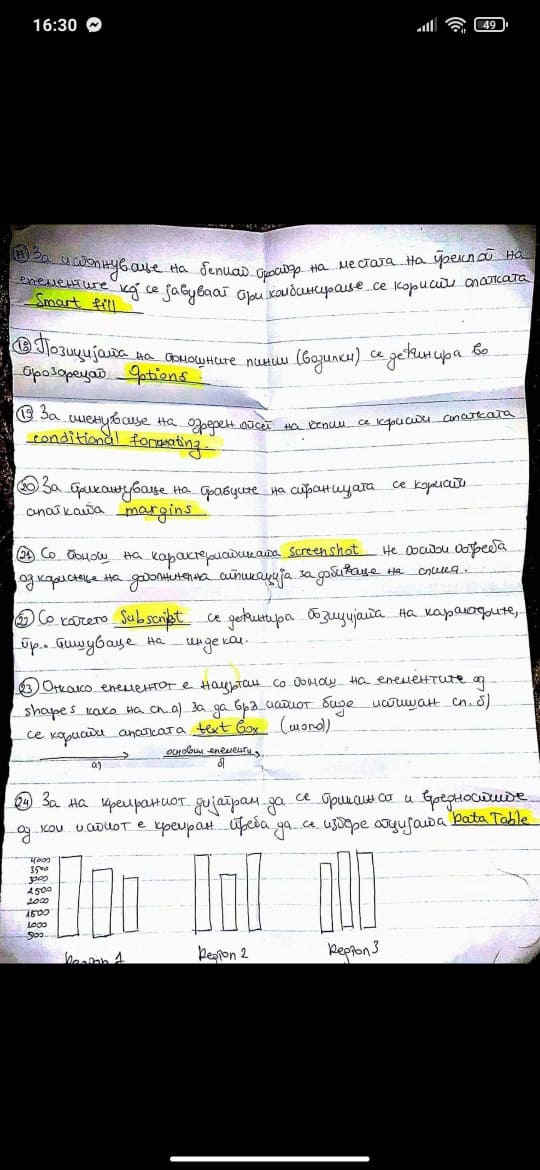 16:30
49
17 За исполнување на белиот простор на местата на преклоп на
елементите кој се јавуваат при комбинирање се користи алатката
Smart fill
18 Позицијата на помошните линии (водилки) се дефинира во
прозорецот Options
19 За именување на одреден опсег на ќелии се користи алатката
conditional formating.
20 За прикажување на рабовите на страницата се користи
алатката margins
21 Со помош на карактеристиката Screenshot не постои потреба
од користење на дополнителна апликација за добивање на слика.
22 Со копчето Subscript се дефинира позицијата на карактерите,
пр. пишување на индекси.
23 Откако елементот е нацртан со помош на елементите од
shapes како на сл. а) За да врз истиот биде испишан сл. б)
се користи алатката text box (word)
основни елементи
а)
б)
24 За на креираниот дијаграм да се прикажат и вредностите
од кои истиот е креиран треба да се избере опцијата Data Table
4000
3500
3000
2500
2000
1500
1000
500
Region 1
Region 2
Region 3